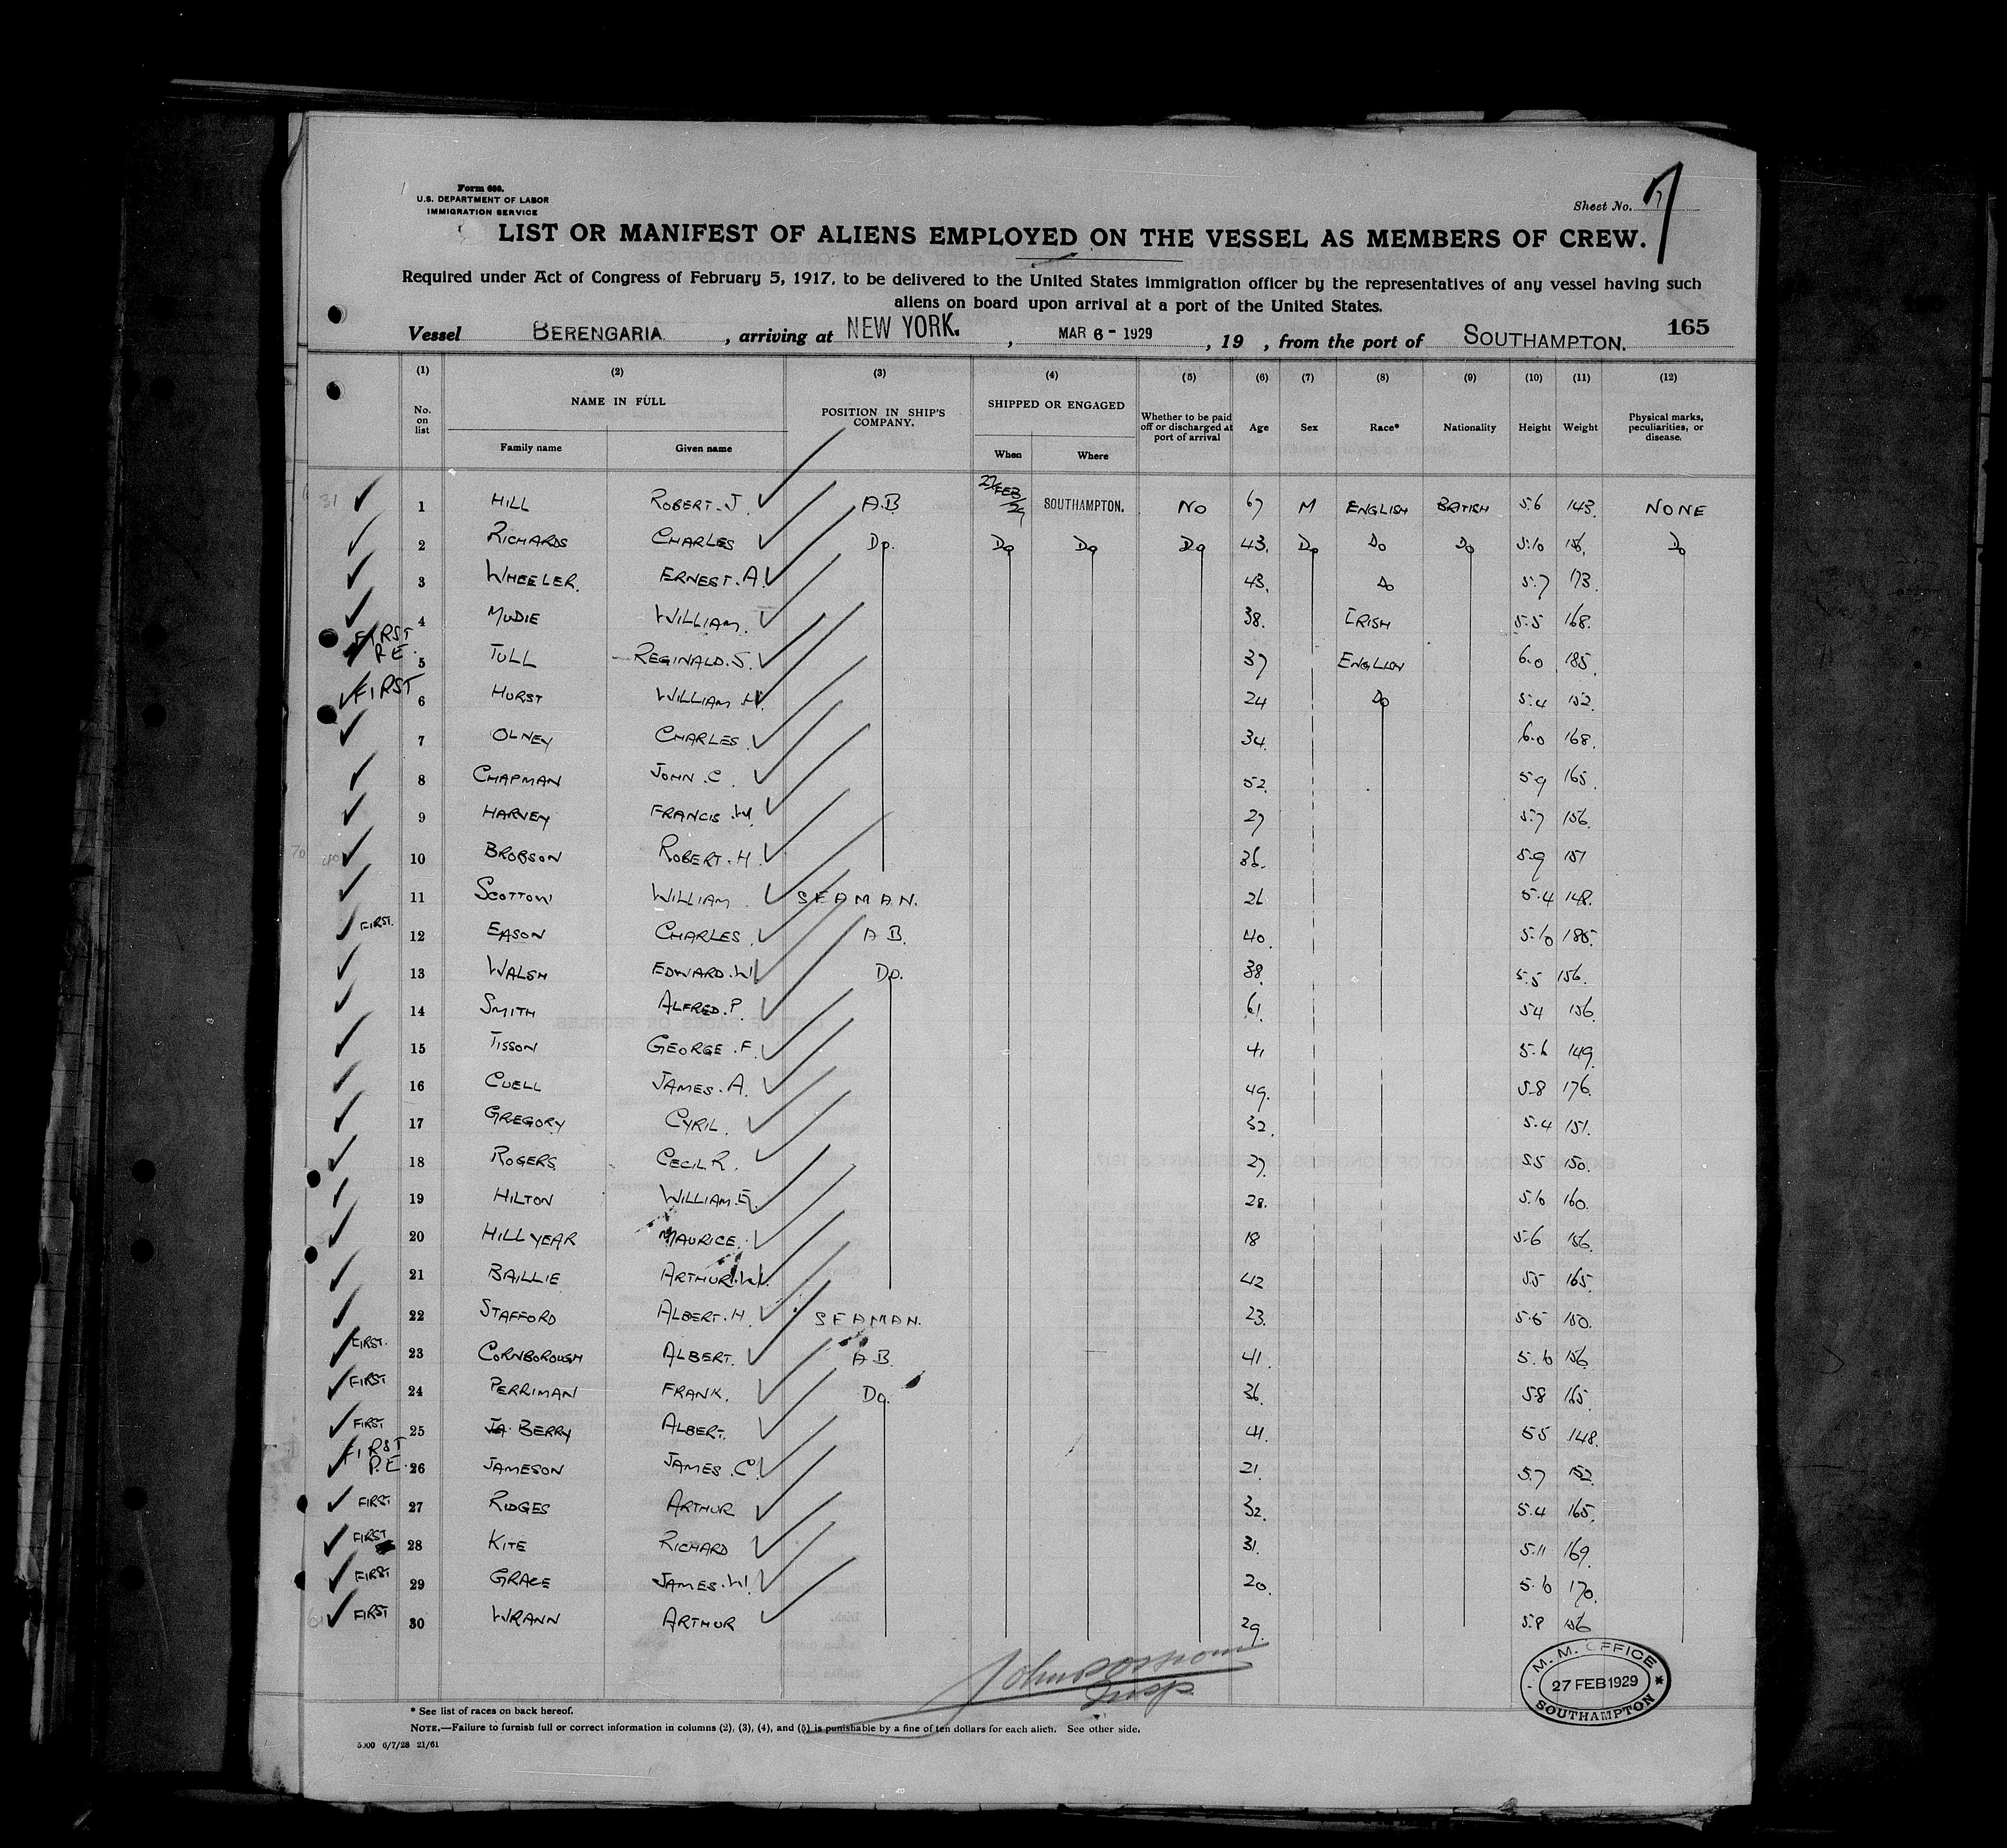 Form 686.
U.S. DEPARTMENT OF LABOR
IMMIGRATION SERVICE
Sheet No. 7
LIST OR MANIFEST OF ALIENS EMPLOYED ON THE VESSEL AS MEMBERS OF CREW.
Required under Act of Congress of February 5, 1917, to be delivered to the United States immigration officer by the representatives of any vessel having such
aliens on board upon arrival at a port of the United States.
165
Vessel BERENGARIA, arriving at NEW YORK, MAR 6 - 1929, 19 , from the port of SOUTHAMPTON.
(1) (2) (3) (4) (5) (6) (7) (8) (9) (10) (11) (12)
No. on list NAME IN FULL Family name Given name POSITION IN SHIP'S COMPANY. SHIPPED OR ENGAGED When Where Whether to be paid off or discharged at port of arrival Age Sex Race* Nationality Height Weight Physical marks, peculiarities, or disease.
31 1 HILL ROBERT.J. A.B 27 FEB/29 SOUTHAMPTON. NO 67 M ENGLISH BRITISH 5.6 143. NONE
2 RICHARDS CHARLES Do. Do Do Do 43. Do Do Do 5.10 156. Do
3 WHEELER. ERNEST.A. 43. Do 5.7 173.
4 MUDIE WILLIAM. 38. IRISH 5.5 168.
FIRST P.E. 5 TULL REGINALD.S. 37 ENGLISH 6.0 185.
FIRST 6 HURST WILLIAM.H. 24 Do 5.4 152.
7 OLNEY CHARLES. 34. 6.0 168.
8 CHAPMAN JOHN.C. 52. 5.9 165.
9 HARVEY FRANCIS.W. 27 5.7 156.
40 10 BROBSON ROBERT.H. 36. 5.9 151
11 SCOTTOW WILLIAM. SEAMAN. 26 5.4 148.
FIRST. 12 EASON CHARLES. A B. 40. 5.10 185.
13 WALSH EDWARD.W. Do. 38. 5.5 156.
14 SMITH ALFRED.P. 61. 5.4 156.
15 TISSON GEORGE.F. 41 5.6 149.
16 CUELL JAMES.A. 49. 5.8 176.
17 GREGORY CYRIL. 32. 5.4 151.
18 ROGERS CECIL R. 27. 5.5 150.
19 HILTON WILLIAM.E. 28. 5.10 160.
20 HILLYEAR MAURICE. 18 5.6 156.
21 BAILLIE ARTHUR.W. 42 5.5 165.
22 STAFFORD ALBERT.H. SEAMAN. 23. 5.6 150.
FIRST. 23 CORNBOROUGH ALBERT. A B. 41. 5.6 156.
FIRST 24 PERRIMAN FRANK. Do. 36. 5.8 165.
FIRST 25 BERRY ALBERT. 41. 5.5 148.
FIRST P.E. 26 JAMESON JAMES.C. 21. 5.7 152.
FIRST 27 RIDGES ARTHUR 32. 5.4 165.
FIRST 28 KITE RICHARD 31. 5.11 169.
FIRST 29 GRACE JAMES.W. 20. 5.6 170.
FIRST 30 WRANN ARTHUR 29. 5.8 156
M. M. OFFICE
27 FEB 1929
SOUTHAMPTON
* See list of races on back hereof.
NOTE.—Failure to furnish full or correct information in columns (2), (3), (4), and (5) is punishable by a fine of ten dollars for each alien. See other side.
5000 6/7/28 21/61